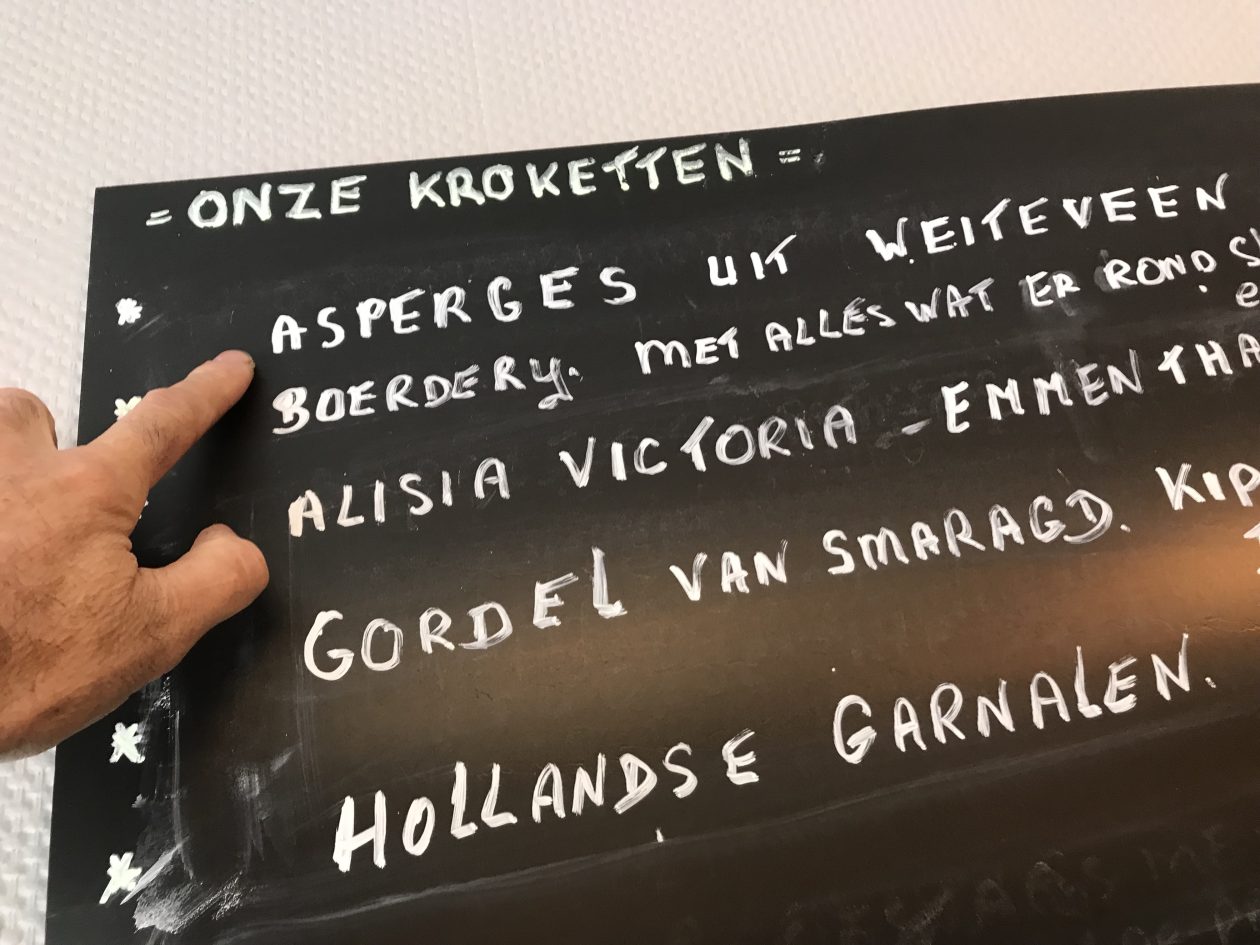 = ONZE KROKETTEN =
* ASPERGES UIT WEITEVEEN
* BOERDERY. MET ALLES WAT ER ROND
ALISIA VICTORIA - EMMENTHA
GORDEL VAN SMARAGD. KIP
* HOLLANDSE GARNALEN.
*